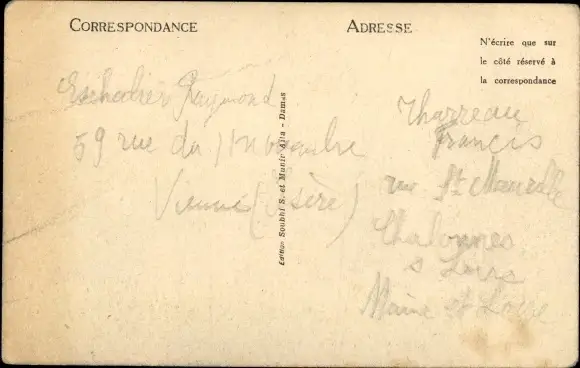 CORRESPONDANCE
ADRESSE
N'écrire que sur
le côté réservé à
la correspondance
Eschalier Raymond
59 rue du 11 Novembre
Vienne (Isère)
Edition Soubhi S. et Munir Aïta - Damas
Tharreau
Francis
rue St Maurille
Chalonnes
s Loire
Maine et Loire